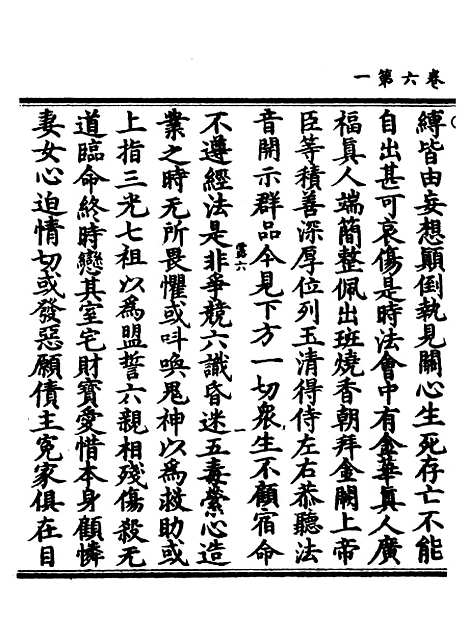 卷六第一
縛皆由妄想顛倒執見關心生死存亡不能
自出甚可哀傷是時法會中有金華真人廣
福真人端簡整佩出班燒香朝拜金闕上帝
臣等積善深厚位列玉清得侍左右恭聽法
音開示群品今見下方一切衆生不顧宿命
露六
不遵經法是非爭競六識昏迷五毒縈心造
業之時无所畏懼或呌喚鬼神以爲救助或
上指三光七祖以爲盟誓六親相殘傷殺无
道臨命終時戀其室宅財寶愛惜本身顧憐
妻女心迫情切或發惡願債主冤家俱在目